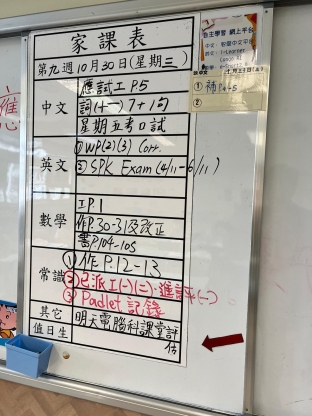 家課表
第九週10月30日(星期三)
中文
應試工P.5
詞(十一)7+1句
星期五考口試
英文
①WP(2)(3) Corr.
②SPK Exam (4/11-6/11)
數學
工P.1
作P.30-31及改正
書P.104-105
常識
①作P.12-13
②已派工(一)(二)、進評(一)
③Padlet 記錄
其它
明天電腦科課堂評估
值日生
自主學習 網上平台
①補P4-5
②
應